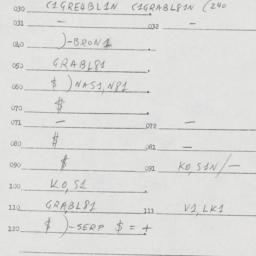 030 C1GRE4BL1N C1GRABL81N (240
031 — 032 —
040 )-BRON1
050 GRABL81
060 $ )NAS1,N81
070 $
071 — 072 —
080 $ 081 —
090 $ 091 K0,S1N/—
100 K.0,S1
110 GRABL81 111 V1,LK1
120 $ )-SERP $ = +